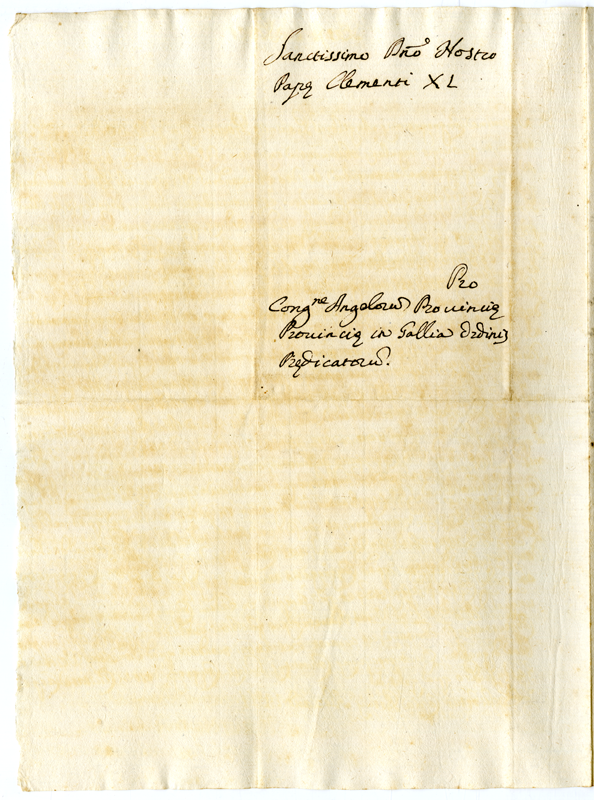 Sanctissimo Dño Nostro
Papę Clementi XI
Pro
Congne Angelorũ Prouincię
Prouincię in Gallia Ordinis
Prędicatorũ.